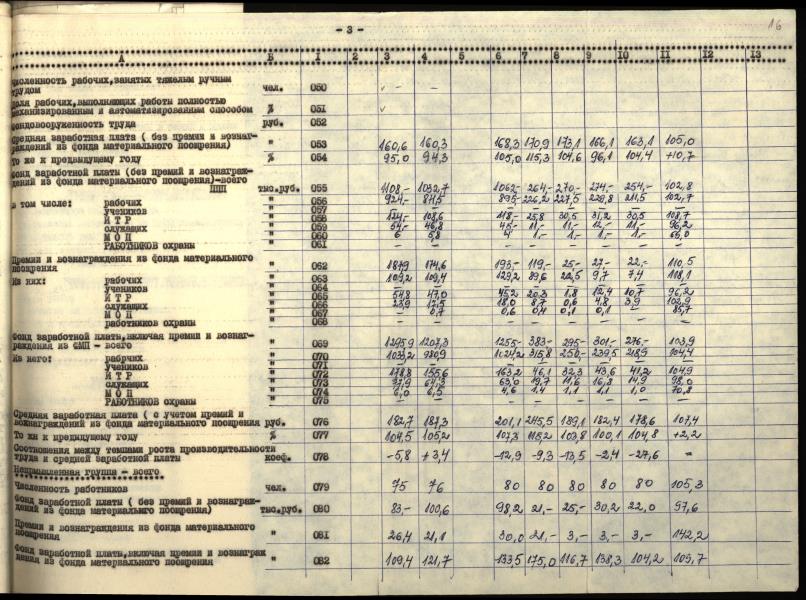 16
- 3 -
А Б 1 2 3 4 5 6 7 8 9 10 11 12 13
Численность рабочих,занятых тяжелым ручным
трудом чел. 050 - -
Доля рабочих,выполняющих работы полностью
механизированным и автоматизированным способом % 051
Фондовооруженность труда руб. 052
Средняя заработная плата ( без премий и вознаг-
раждений из фонда материального поощрения) " 053 160,6 160,3 168,3 170,9 173,1 166,1 163,1 105,0
То же к предыдущему году % 054 95,0 94,3 105,0 115,3 104,6 96,1 104,4 +10,7
Фонд заработной платы (без премий и вознаграж-
дений из фонда материального поощрения)-всего
ППП тыс.руб. 055 1108,- 1032,7 1062,- 264,- 270,- 274,- 254,- 102,8
в том числе: рабочих " 056 924,- 895,- 226,2 227,5 229,8 211,5 102,7
учеников " 057
И Т Р " 058 124,- 108,6 118,- 25,8 30,5 31,2 30,5 108,7
служащих " 059 54,- 46,8 45,- 11,- 11,- 12,- 11,- 96,2
М О П " 060 6 5,8 4 1,- 1,- 1,- 1,-
РАБОТНИКОВ охраны " 061 - -
Премии и вознаграждения из фонда материального
поощрения " 062 187,9 174,6 193,- 119,- 25,- 27,- 22,- 110,5
Из них: рабочих " 063 109,2 109,4 129,2 89,6 22,5 9,7 7,4 118,1
учеников " 064
И Т Р " 065 54,8 47,0 45,2 20,3 1,8 12,4 10,7 96,2
служащих " 066 23,9 17,5 18,0 8,7 0,6 4,8 3,9 102,9
М О П " 067 - 0,7 0,6 0,4 0,1 0,1 - 85,7
работников охраны " 068 - -
Фонд заработной платы,включая премии и вознаг-
раждения из ФМП - всего " 069 1295,9 1207,3 1255,- 383,- 295,- 301,- 276,- 103,9
Из него: рабочих " 070 1033,2 980,9 1024,2 315,8 250,- 239,5 218,9 104,4
Учеников " 071
И Т Р " 072 178,8 155,6 163,2 46,1 32,3 43,6 41,2 104,9
служащих " 073 77,9 64,3 63,0 19,7 11,6 16,8 14,9 98,0
М О П " 074 6,0 6,5 4,6 1,4 1,1 1,1 1,0 70,8
РАБОТНИКОВ охраны " 075 - -
Средняя заработная плата ( с учетом премий и
вознаграждений из фонда материального поощрения руб. 076 182,7 187,3 201,1 245,5 189,1 182,4 178,6 107,4
То же к предыдущему году % 077 104,5 105,2 107,3 115,2 103,8 100,1 104,8 +2,2
Соотношения между темпами роста производительности
труда и средней заработной платы коеф. 078 -5,8 +3,4 -12,9 -9,3 -13,5 -2,4 -27,6 "
Непромышленная группа - всего
Численность работников чел. 079 75 76 80 80 80 80 80 105,3
Фонд заработной платы ( без премий и вознаграж-
дений из фонда материального поощрения) тыс.руб. 080 83,- 100,6 98,2 21,- 25,- 30,2 22,0 97,6
Премии и вознаграждения из фонда материального
поощрения " 081 26,4 21,1 30,0 21,- 3,- 3,- 3,- 142,2
Фонд заработной платы,включая премии и вознаграж
дения из фонда материального поощрения " 082 109,4 121,7 133,5 175,0 116,7 138,3 104,2 109,7